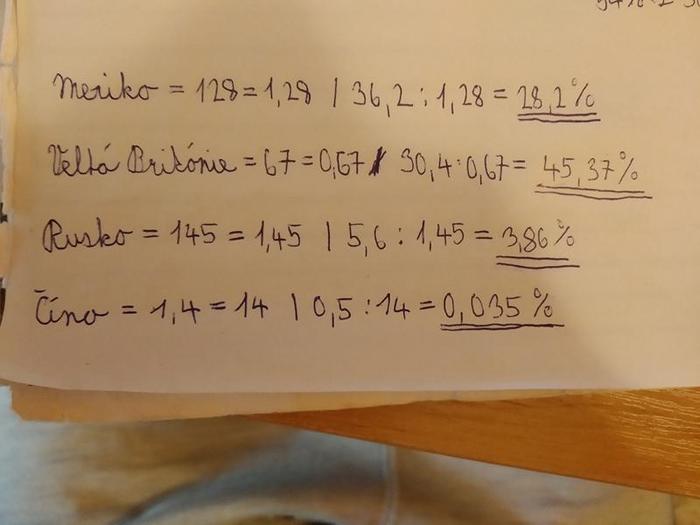 Meriko = 128 = 1,28 | 36,2 : 1,28 = 28,2%
Veltá Británie = 67 = 0,67 | 30,4 : 0,67 = 45,37%
Rusko = 145 = 1,45 | 5,6 : 1,45 = 3,86%
Čína = 1,4 = 14 | 0,5 : 14 = 0,035%